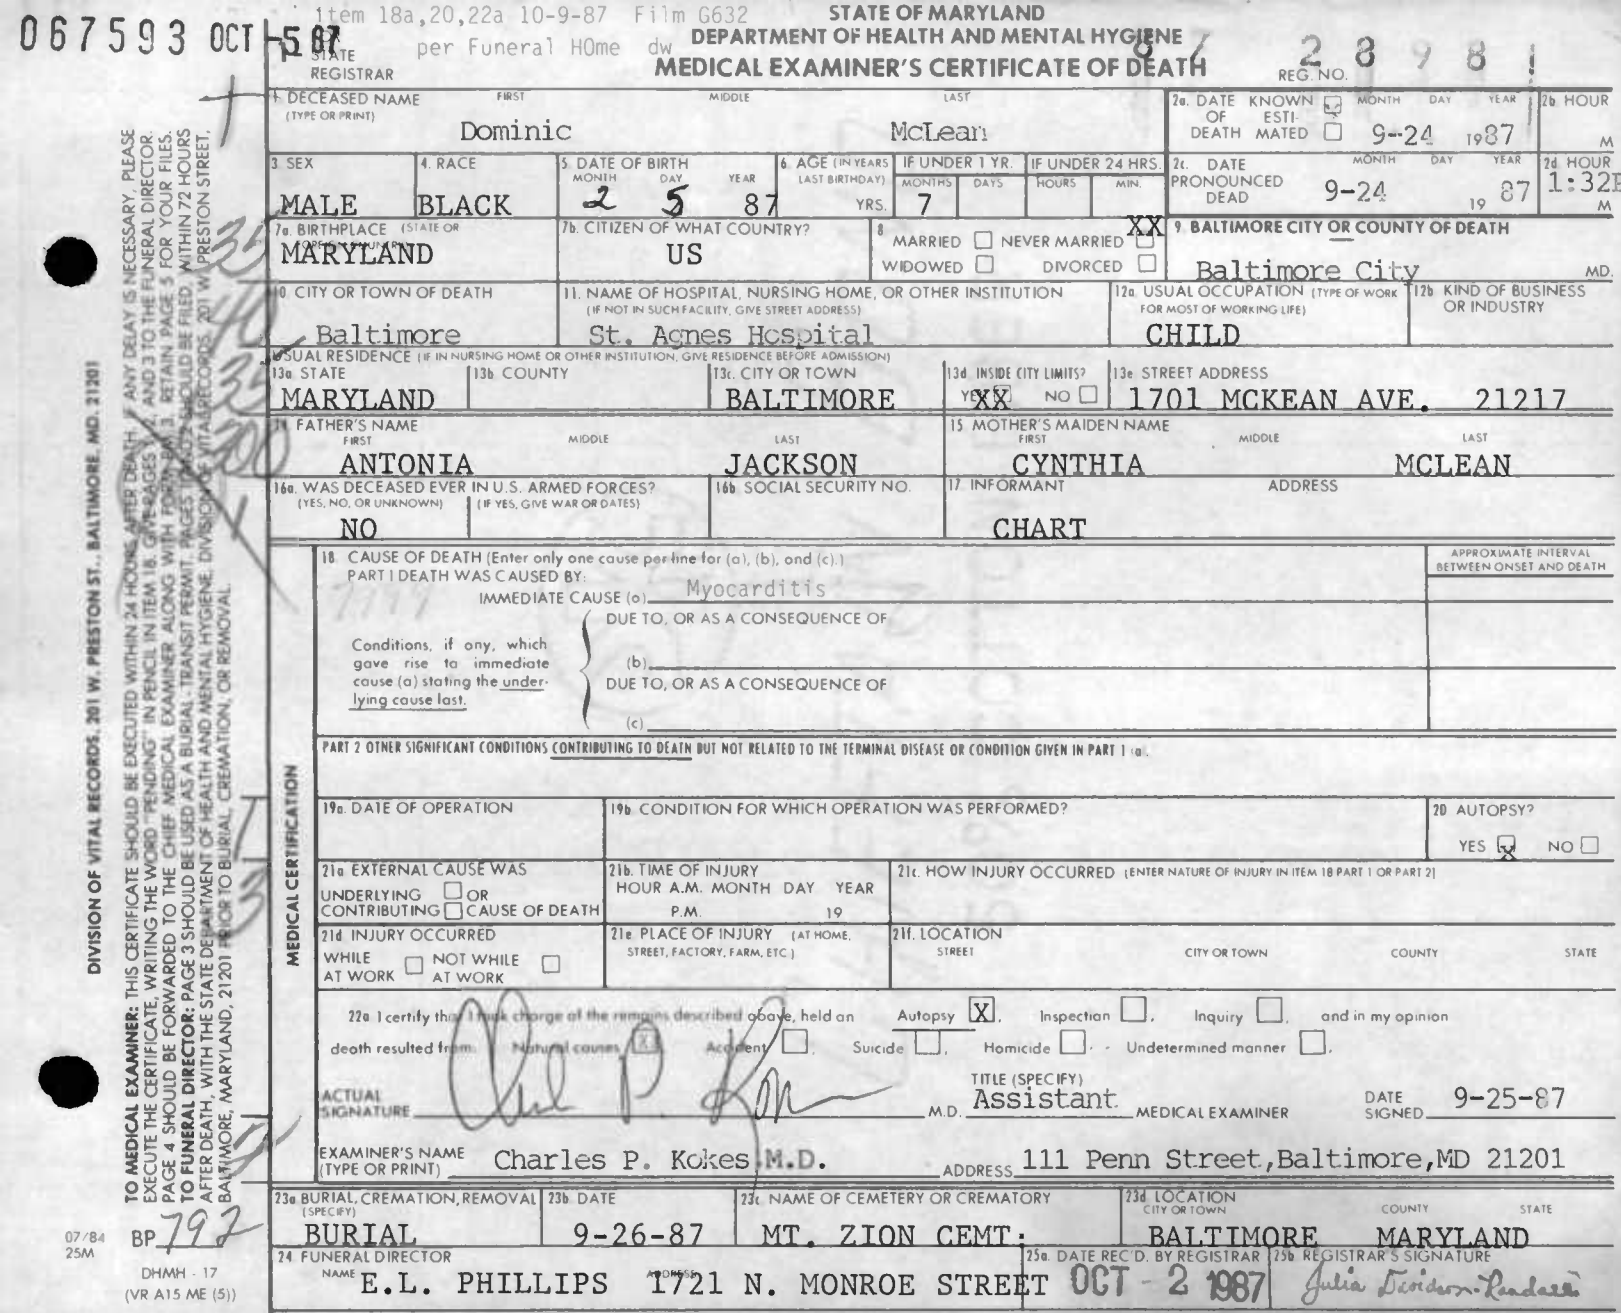 item 18a,20,22a 10-9-87 Film G632
per Funeral HOme dw
067593 OCT -5 87
STATE REGISTRAR
STATE OF MARYLAND
DEPARTMENT OF HEALTH AND MENTAL HYGIENE
MEDICAL EXAMINER'S CERTIFICATE OF DEATH
REG. NO. 87 28981
1. DECEASED NAME (TYPE OR PRINT) FIRST MIDDLE LAST
Dominic McLean
2a. DATE OF DEATH KNOWN ESTIMATED MONTH DAY YEAR
9-24 1987
2b HOUR M
3. SEX
MALE
4. RACE
BLACK
5. DATE OF BIRTH MONTH DAY YEAR
2 5 87
6. AGE (IN YEARS LAST BIRTHDAY) YRS.
IF UNDER 1 YR. MONTHS DAYS
7
IF UNDER 24 HRS. HOURS MIN.
2c. DATE PRONOUNCED DEAD MONTH DAY YEAR
9-24 19 87
2d HOUR
1:32P M
7a. BIRTHPLACE (STATE OR FOREIGN COUNTRY)
MARYLAND
7b. CITIZEN OF WHAT COUNTRY?
US
8 MARRIED NEVER MARRIED XX
WIDOWED DIVORCED
9. BALTIMORE CITY OR COUNTY OF DEATH
Baltimore City MD.
10. CITY OR TOWN OF DEATH
Baltimore
11. NAME OF HOSPITAL, NURSING HOME, OR OTHER INSTITUTION
(IF NOT IN SUCH FACILITY, GIVE STREET ADDRESS)
St. Agnes Hospital
12a USUAL OCCUPATION (TYPE OF WORK FOR MOST OF WORKING LIFE)
CHILD
12b KIND OF BUSINESS OR INDUSTRY
USUAL RESIDENCE (IF IN NURSING HOME OR OTHER INSTITUTION, GIVE RESIDENCE BEFORE ADMISSION)
13a STATE
MARYLAND
13b COUNTY
13c. CITY OR TOWN
BALTIMORE
13d INSIDE CITY LIMITS?
YES XX NO
13e STREET ADDRESS
1701 MCKEAN AVE. 21217
14 FATHER'S NAME FIRST MIDDLE LAST
ANTONIA JACKSON
15 MOTHER'S MAIDEN NAME FIRST MIDDLE LAST
CYNTHIA MCLEAN
16a. WAS DECEASED EVER IN U.S. ARMED FORCES?
(YES, NO, OR UNKNOWN) (IF YES, GIVE WAR OR DATES)
NO
16b SOCIAL SECURITY NO.
17 INFORMANT ADDRESS
CHART
18 CAUSE OF DEATH (Enter only one cause per line for (a), (b), and (c).)
PART I DEATH WAS CAUSED BY:
7999
IMMEDIATE CAUSE (a) Myocarditis
APPROXIMATE INTERVAL BETWEEN ONSET AND DEATH
DUE TO, OR AS A CONSEQUENCE OF
Conditions, if any, which gave rise to immediate cause (a) stating the underlying cause last.
(b)
DUE TO, OR AS A CONSEQUENCE OF
(c)
PART 2 OTHER SIGNIFICANT CONDITIONS CONTRIBUTING TO DEATH BUT NOT RELATED TO THE TERMINAL DISEASE OR CONDITION GIVEN IN PART 1 (a).
MEDICAL CERTIFICATION
19a. DATE OF OPERATION
19b CONDITION FOR WHICH OPERATION WAS PERFORMED?
20 AUTOPSY?
YES X NO
21a EXTERNAL CAUSE WAS
UNDERLYING OR
CONTRIBUTING CAUSE OF DEATH
21b. TIME OF INJURY
HOUR A.M. MONTH DAY YEAR
P.M. 19
21c. HOW INJURY OCCURRED (ENTER NATURE OF INJURY IN ITEM 18 PART 1 OR PART 2)
21d INJURY OCCURRED
WHILE AT WORK NOT WHILE AT WORK
21e PLACE OF INJURY (AT HOME, STREET, FACTORY, FARM, ETC.)
21f. LOCATION
STREET CITY OR TOWN COUNTY STATE
22a I certify that I took charge of the remains described above, held an Autopsy X, Inspection, Inquiry, and in my opinion
death resulted from: Natural causes X, Accident, Suicide, Homicide, Undetermined manner.
ACTUAL SIGNATURE M.D.
TITLE (SPECIFY)
Assistant MEDICAL EXAMINER
DATE SIGNED 9-25-87
EXAMINER'S NAME (TYPE OR PRINT) Charles P. Kokes M.D.
ADDRESS 111 Penn Street, Baltimore, MD 21201
23a BURIAL, CREMATION, REMOVAL (SPECIFY)
BURIAL
23b DATE
9-26-87
23c NAME OF CEMETERY OR CREMATORY
MT. ZION CEMT:
23d LOCATION CITY OR TOWN COUNTY STATE
BALTIMORE MARYLAND
24 FUNERAL DIRECTOR
NAME ADDRESS
E.L. PHILLIPS 1721 N. MONROE STREET
25a. DATE REC'D. BY REGISTRAR
OCT - 2 1987
25b REGISTRAR'S SIGNATURE
Julia Davidson-Randall
DIVISION OF VITAL RECORDS, 201 W. PRESTON ST., BALTIMORE, MD. 21201
TO MEDICAL EXAMINER: THIS CERTIFICATE SHOULD BE EXECUTED WITHIN 24 HOURS AFTER DEATH. IF ANY DELAY IS NECESSARY, PLEASE
EXECUTE THE CERTIFICATE, WRITING THE WORD "PENDING" IN PENCIL IN ITEM 18. GIVE PAGES 1, 2, AND 3 TO THE FUNERAL DIRECTOR.
PAGE 4 SHOULD BE FORWARDED TO THE CHIEF MEDICAL EXAMINER ALONG WITH FORM BM 3. RETAIN PAGE 5 FOR YOUR FILES.
TO FUNERAL DIRECTOR: PAGE 3 SHOULD BE USED AS A BURIAL, TRANSIT PERMIT. PAGES 1 AND 2 SHOULD BE FILED, WITHIN 72 HOURS
AFTER DEATH, WITH THE STATE DEPARTMENT OF HEALTH AND MENTAL HYGIENE, DIVISION OF VITAL RECORDS, 201 W. PRESTON STREET,
BALTIMORE, MARYLAND, 21201 PRIOR TO BURIAL, CREMATION, OR REMOVAL.
07/84
25M
BP 792
DHMH - 17
(VR A15 ME (5))